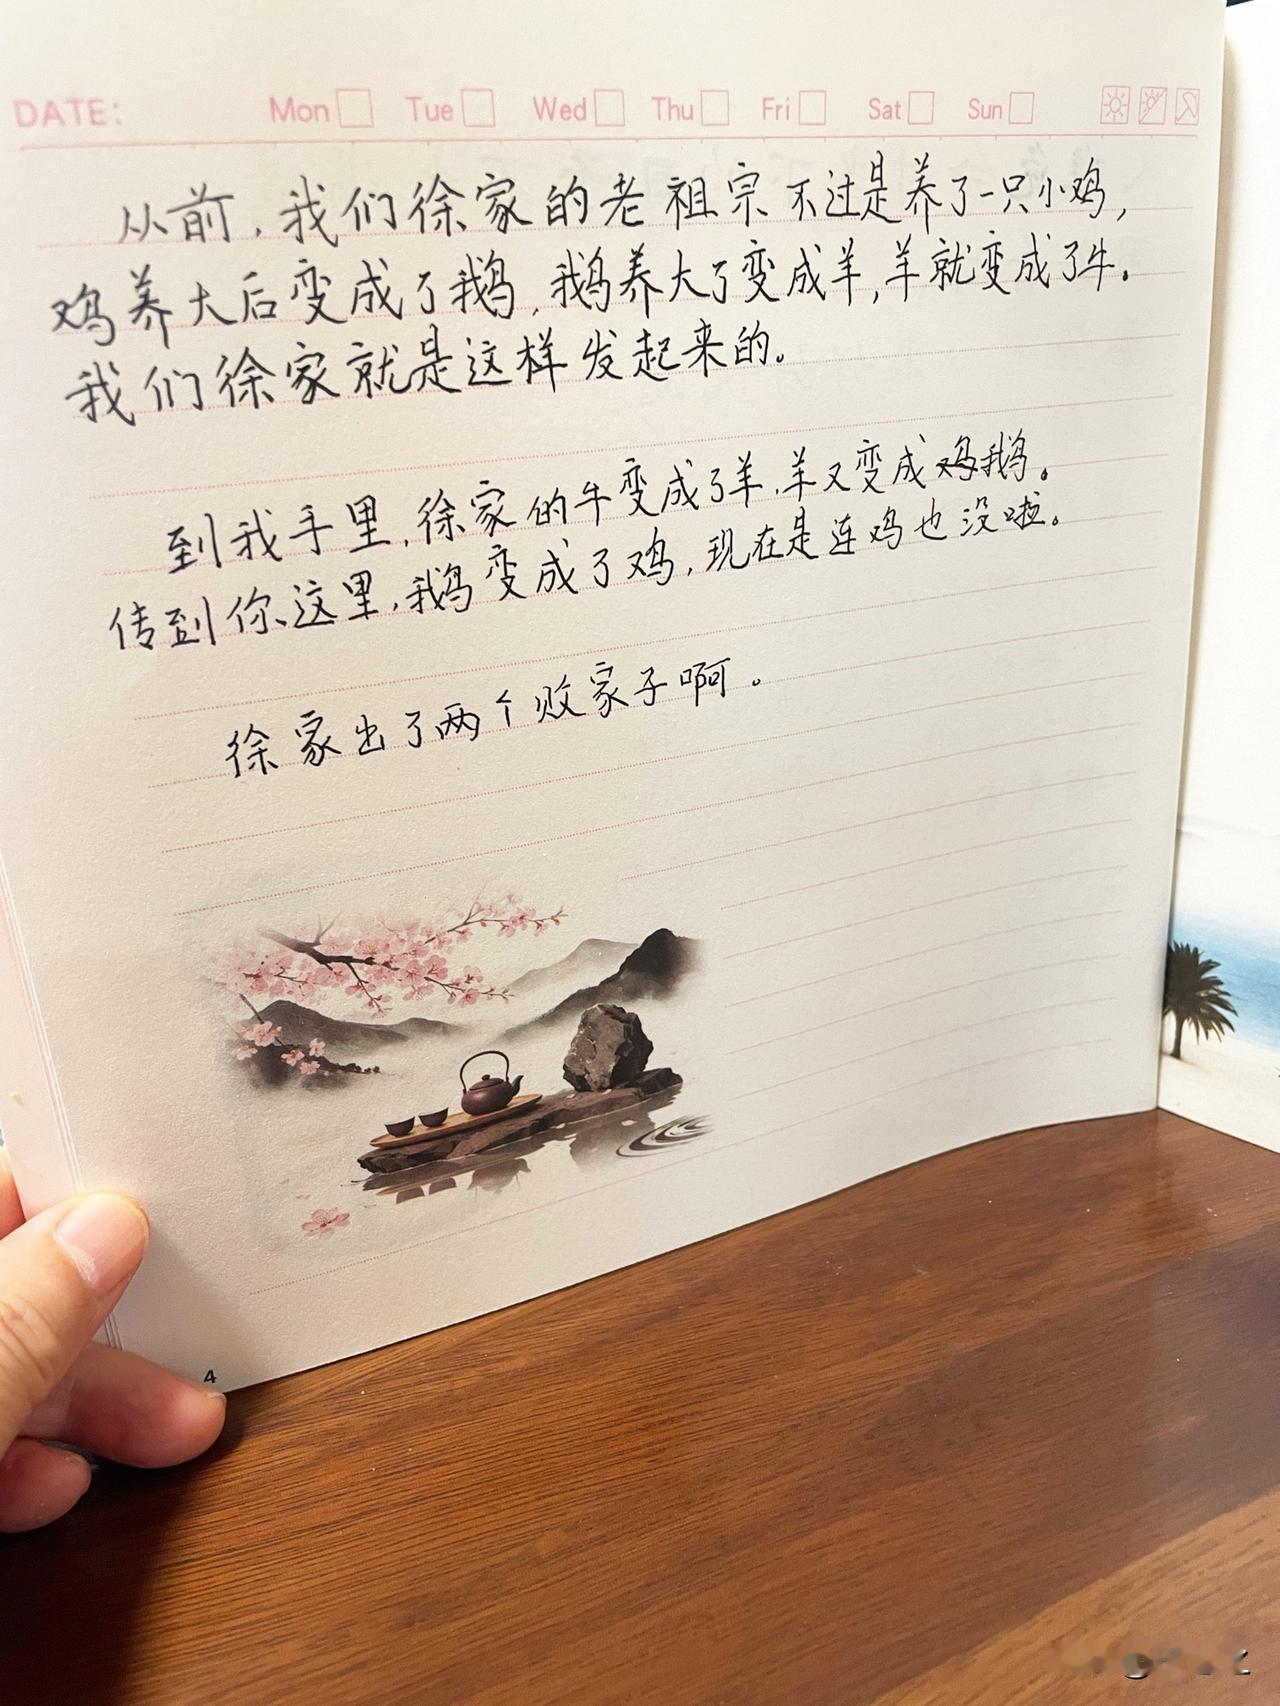 DATE: Mon Tue Wed Thu Fri Sat Sun
从前,我们徐家的老祖宗不过是养了一只小鸡,
鸡养大后变成了鹅,鹅养大了变成羊,羊就变成了牛。
我们徐家就是这样发起来的。
到我手里,徐家的牛变成了羊,羊又变成鸡鹅。
传到你这里,鹅变成了鸡,现在是连鸡也没啦。
徐家出了两个败家子啊。
4